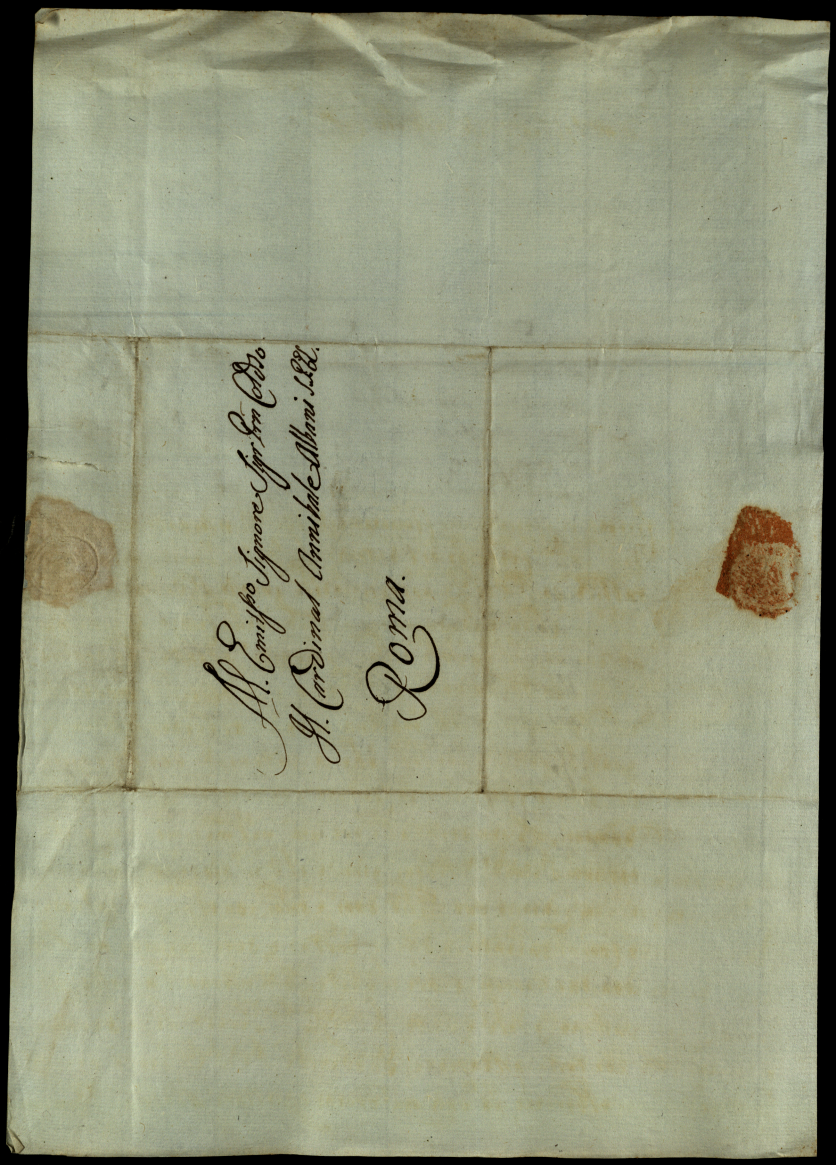 All. Emilsso Signore Sigr Prn Colsso
Il Cardinal Annibale Albani
Roma.